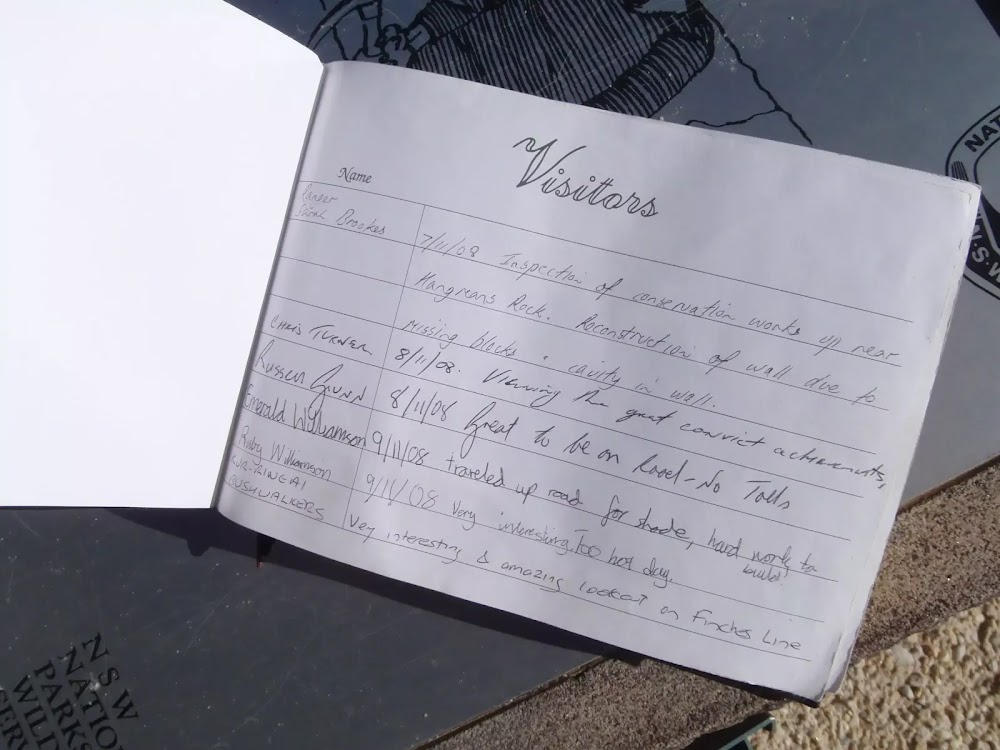 Visitors
Name
Ranger
Sarah Brookes
7/11/08 Inspection of conservation works up near
Hangmans Rock. Reconstruction of wall due to
missing blocks & cavity in wall.
CHRIS TURNER 8/11/08. Viewing the great convict achievements,
Russell Gunn 8/11/08 Great to be on Road - No Tolls
Emerald Williamson 9/11/08 traveled up road for shade, hard work to
build
Ruby Williamson 9/11/08 Very interesting. Too hot day.
KUR-RING-GAI
BUSHWALKERS Very interesting & amazing lookout on Finches Line
NAT
N.S.W
NSW
NATIO
PARKS
WILD
SERV